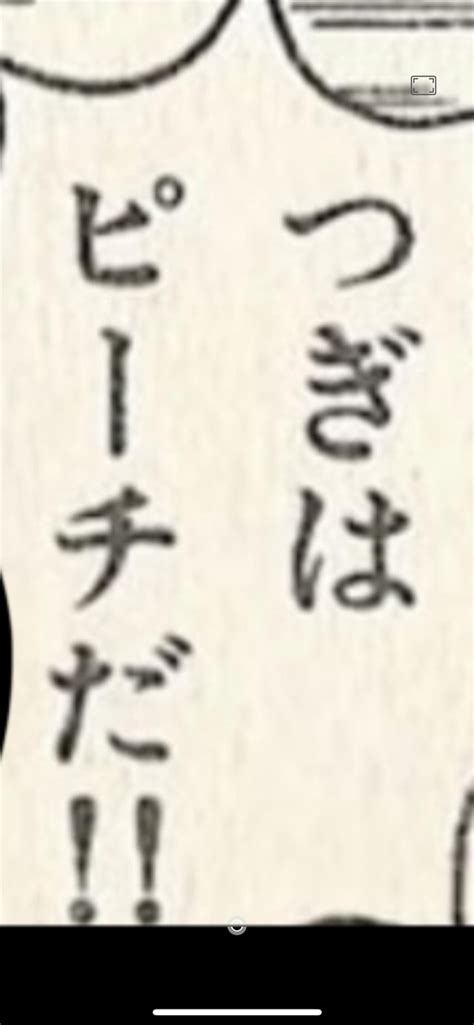 つぎは
ピーチだ!!